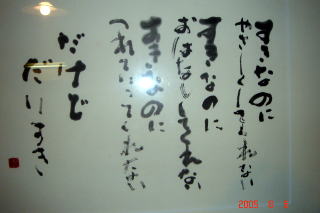 すきなのに
やさしくしてくれない
すきなのに
おはなししてくれない
すきなのに
つれていってくれない
だけど
だいすき
2005